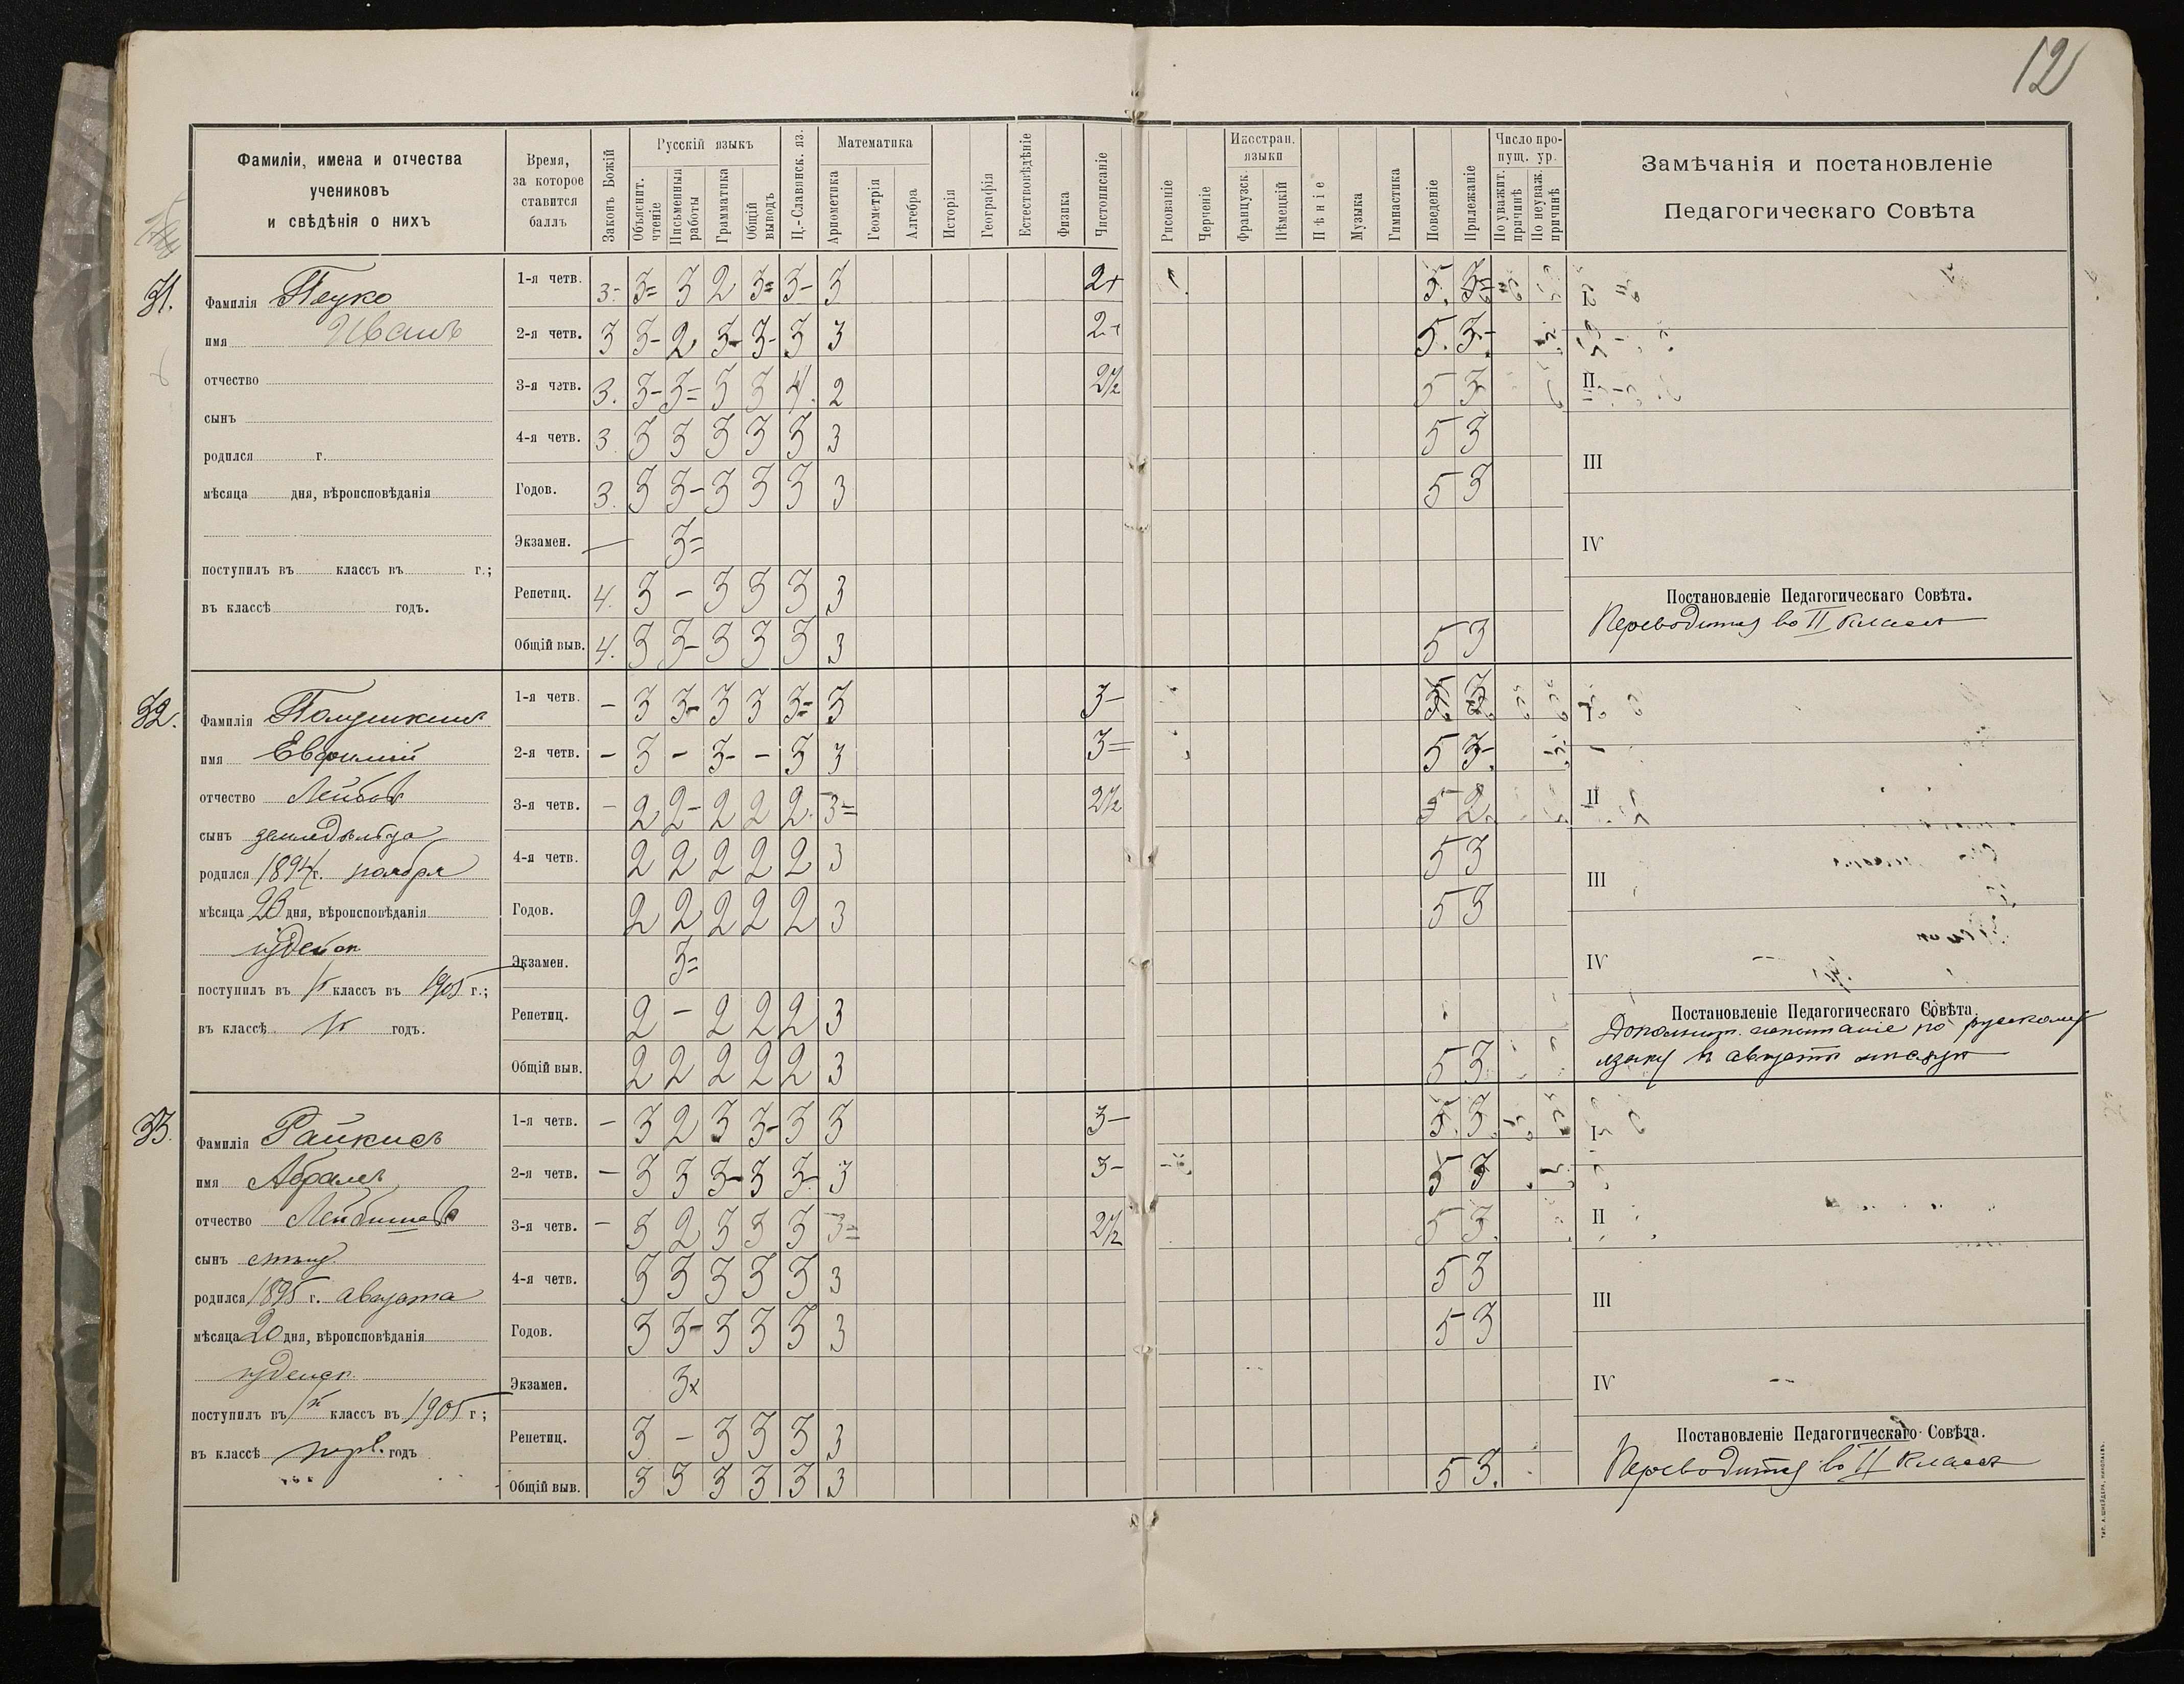 12
Фамиліи, имена и отчества
учениковъ
и свѣдѣнія о нихъ
Время,
за которое
ставится
баллъ
Законъ Божій
Русскій языкъ
Объяснит. чтеніе
Письменныя работы
Грамматика
Общій выводъ
Ц.-Славянск. яз.
Математика
Ариѳметика
Геометрія
Алгебра
Исторія
Географія
Естествовѣдѣніе
Физика
Чистописаніе
Рисованіе
Черченіе
Иностран. языки
Французск.
Нѣмецкій
Пѣніе
Музыка
Гимнастика
Поведеніе
Прилежаніе
Число про-
пущ. ур.
По уважит. причинѣ
По неуваж. причинѣ
Замѣчанія и постановленіе
Педагогическаго Совѣта
31.
Фамилія
имя Иванъ
отчество
сынъ
родился г.
мѣсяца дня, вѣроисповѣданія
поступилъ въ классъ въ г.;
въ классѣ годъ.
1-я четв. 3- 3= 3 2 3= 3- 3 2+ 5. 3=
2-я четв. 3 3- 2 3- 3- 3 3 2+ 5. 3-
3-я четв. 3. 3- 3= 3 3 4. 2 2½ 5 3
4-я четв. 3 3 3 3 3 3 3 5 3
Годов. 3. 3 3- 3 3 3 3 5 3
Экзамен. — 3=
Репетиц. 4. 3 - 3 3 3 3
Общій выв. 4. 3 3- 3 3 3 3 5 3
I
II
III
IV
Постановленіе Педагогическаго Совѣта.
Переводится во II классъ
32.
Фамилія
имя Евфимій
отчество Лейбовъ
сынъ земледѣльца
родился 1894 г. ноября
мѣсяца дня, вѣроисповѣданія
іудейск
поступилъ въ классъ въ 1905 г.;
въ классѣ годъ.
1-я четв. - 3 3- 3 3 3= 3 3- 5. 3.
2-я четв. - 3 - 3- - 3 3 3= 5 3-
3-я четв. - 2 2- 2 2 2 3= 2½ 5 2
4-я четв. 2 2 2 2 2 3 5 3
Годов. 2 2 2 2 2 3 5 3
Экзамен. 3=
Репетиц. 2 - 2 2 2 3
Общій выв. 2 2 2 2 2 3 5 3
I
II
III
IV
Постановленіе Педагогическаго Совѣта.
Дополнит. испытаніе по русскому
языку въ августѣ
33.
Фамилія Райкисъ
имя Абрамъ
отчество
сынъ
родился 1895 г. августа
мѣсяца 20 дня, вѣроисповѣданія
іудейск.
поступилъ въ классъ въ 1905 г;
въ классѣ перв. годъ
1-я четв. - 3 2 3 3- 3 3 3- 5. 3.
2-я четв. - 3 3 3- 3 3- 3 3- 5 3
3-я четв. - 3 2 3 3 3 3= 2½ 5 3.
4-я четв. 3 3 3 3 3 3 5 3
Годов. 3 3- 3 3 3 3 5 3
Экзамен. 3x
Репетиц. 3 - 3 3 3 3
Общій выв. 3 3 3 3 3 3 5 3.
I
II
III
IV
Постановленіе Педагогическаго Совѣта.
Переводится во II классъ
ТИП. А. ШНЕЙДЕРА, НИКОЛАЕВЪ.